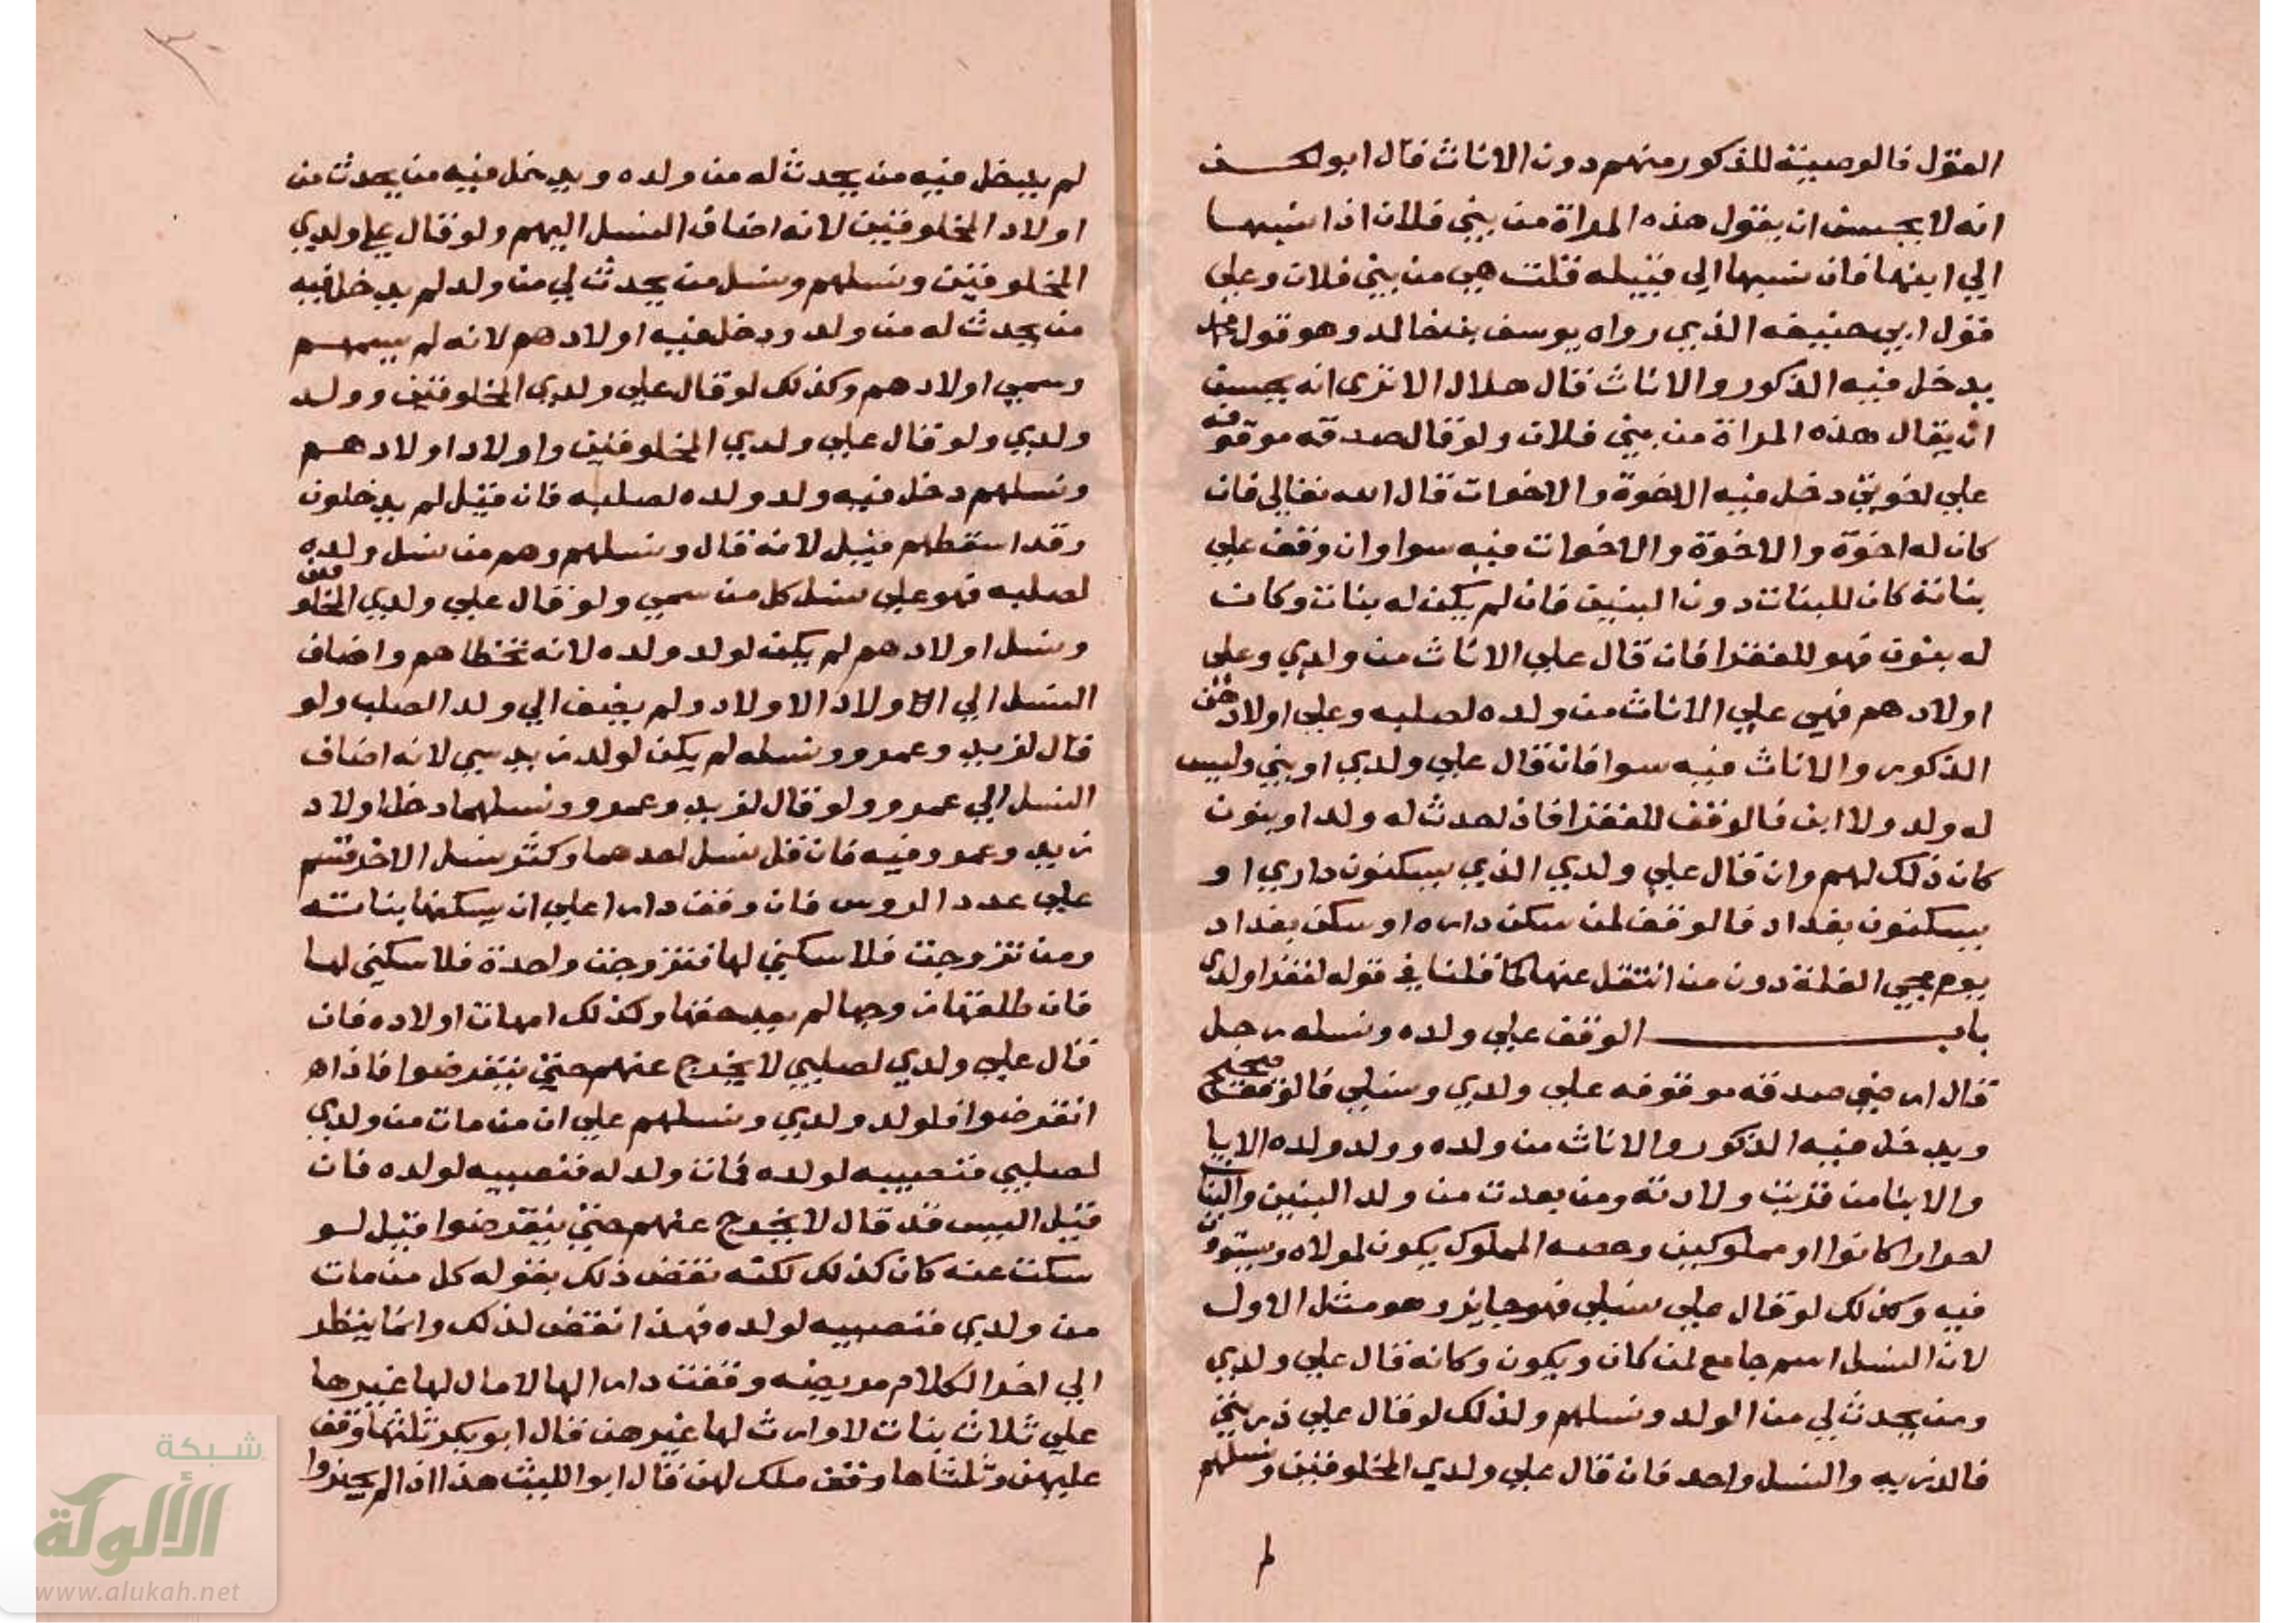 القول فالوصية للذكور منهم دون الاناث قال ابو الحسن
انه لا يحسن ان يقول هذه المراة من بني فلان اذا نسبها
الي ابنها فان نسبها الي قبيله قلت هي من بني فلان وعلي
قول ابي حنيفه الذي رواه يوسف بن خالد وهو قول محمد
يدخل فيه الذكور والاناث قال هلال الا تري انه يحسن
ان يقال هذه المراة من بني فلان ولو قال صدقه موقوفه
علي اخوتي دخل فيه الاخوة والاخوات قال الله تعالي فان
كان له اخوة والاخوة والاخوات فيه سوا وان وقف علي
بناته كان للبنات دون البنين فان لم يكن له بنات وكان
له بنون فهو للفقرا فان قال علي الاناث من ولدي وعلي
اولادهم فهي علي الاناث من ولده لصلبه وعلي اولادهن
الذكور والاناث فيه سوا فان قال علي ولدي او بني وليس
له ولد ولا ابن فالوقف للفقرا فان حدث له ولد او بنون
كان ذلك لهم وان قال علي ولدي الذي يسكنون داري او
يسكنون بغداد فالوقف لمن سكن داره او سكن بغداد
يوم مجي الغلة دون من انتقل عنها كما قلنا في قوله لفقرا ولدي
باب الوقف علي ولده ونسله رجل
قال ارضي صدقه موقوفه علي ولدي ونسلي فالوقف صحيح
ويدخل فيه الذكور والاناث من ولده وولد ولده الابا
والابنا من قربت ولادته ومن بعدت من ولد البنين والبنات
احرارا كانوا او مملوكين وحصه المملوك يكون لمولاه ويستوون
فيه وكذلك لو قال علي نسلي فهو جايز وهو مثل الاول
لان النسل اسم جامع لمن كان ويكون وكانه قال علي ولدي
ومن يحدث لي من الولد ونسلهم ولذلك لو قال علي ذريتي
فالذريه والنسل واحد فان قال علي ولدي المخلوقين ونسلهم
لم يدخل فيه من يحدث له من ولده ويدخل فيه من يحدث من
اولاد المخلوقين لانه اضاف النسل اليهم ولو قال علي ولدي
المخلوقين ونسلهم ونسل من يحدث لي من ولد لم يدخل فيه
من يحدث له من ولد ودخل فيه اولادهم لانه لم يسمهم
وسمي اولادهم وكذلك لو قال علي ولدي المخلوقين وولد
ولدي ولو قال علي ولدي المخلوقين واولاد اولادهم
ونسلهم دخل فيه ولد ولده لصلبه فان قيل لم يدخلون
وقد اسقطهم قيل لانه قال ونسلهم وهم من نسل ولده
لصلبه فهو علي نسل كل من سمي ولو قال علي ولدي المخلوقين
ونسل اولادهم لم يكن لولد ولده لانه تخطاهم واضاف
النسل الي الاولاد الاولاد ولم يضف الي ولد الصلب ولو
قال لزيد وعمرو ونسله لم يكن لولد زيد شي لانه اضاف
النسل الي عمرو ولو قال لزيد وعمرو ونسلهما دخل اولاد
زيد وعمرو فيه فان قل نسل احدهما وكثر نسل الاخر قسم
علي عدد الروس فان وقف دارا علي ان يسكنها بناته
ومن تزوجت فلا سكني لها فتزوجت واحدة فلا سكني لها
فان طلقها زوجها لم يعد حقها وكذلك امهات اولاده فان
قال علي ولدي لصلبي لا يخرج عنهم حتي ينقرضوا فاذا
انقرضوا فلولد ولدي ونسلهم علي ان من مات من ولدي
لصلبي فنصيبه لولده فمات ولد له فنصيبه لولده فان
قيل اليس قد قال لا يخرج عنهم حتي ينقرضوا قيل لو
سكت عنه كان كذلك لكنه نقض ذلك بقوله كل من مات
من ولدي فنصيبه لولده فهذا نقض لذلك وانما ينظر
الي اخر الكلام مريضه وقفت دارا لها لا مال لها غيرها
علي ثلاث بنات لا وارث لها غيرهن قال ابو بكر ثلثها وقف
عليهن وثلثاها وقف ملك لهن قال ابو الليث هذا اذا لم يجيزوا
شبكة
الألوكة
www.alukah.net